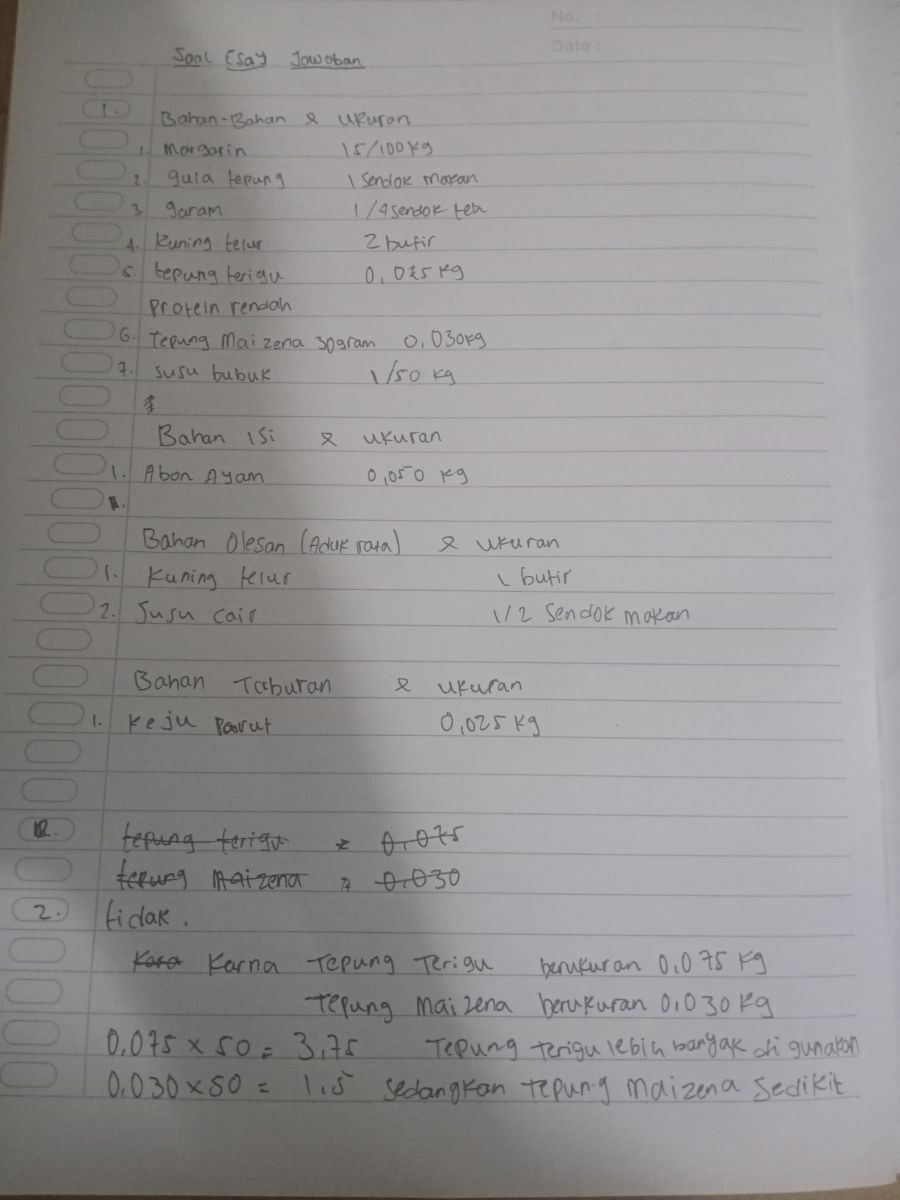 No. :
Date :
Soal Esay Jawaban
1.
Bahan-Bahan & Ukuran
1. Margarin 15/100 kg
2. gula tepung 1 sendok makan
3 garam 1/4 sendok teh
4. Kuning telur 2 butir
5. tepung terigu 0,075 kg
Protein rendah
6. Tepung Maizena 30gram 0,030kg
7. susu bubuk 1/50 kg
Bahan isi & ukuran
1. Abon Ayam 0,050 kg
Bahan Olesan (Aduk rata) & ukuran
1. Kuning telur 1 butir
2. Susu cair 1/2 Sendok makan
Bahan Taburan & ukuran
1. Keju Parut 0,025 kg
tepung terigu 0.075
tepung Maizena 0.030
2. tidak.
Karna Tepung Terigu berukuran 0.075 kg
Tepung maizena berukuran 0.030 kg
0.075 x 50 = 3,75 Tepung terigu lebih banyak di gunakan
0.030 x 50 = 1.5 sedangkan tepung maizena sedikit